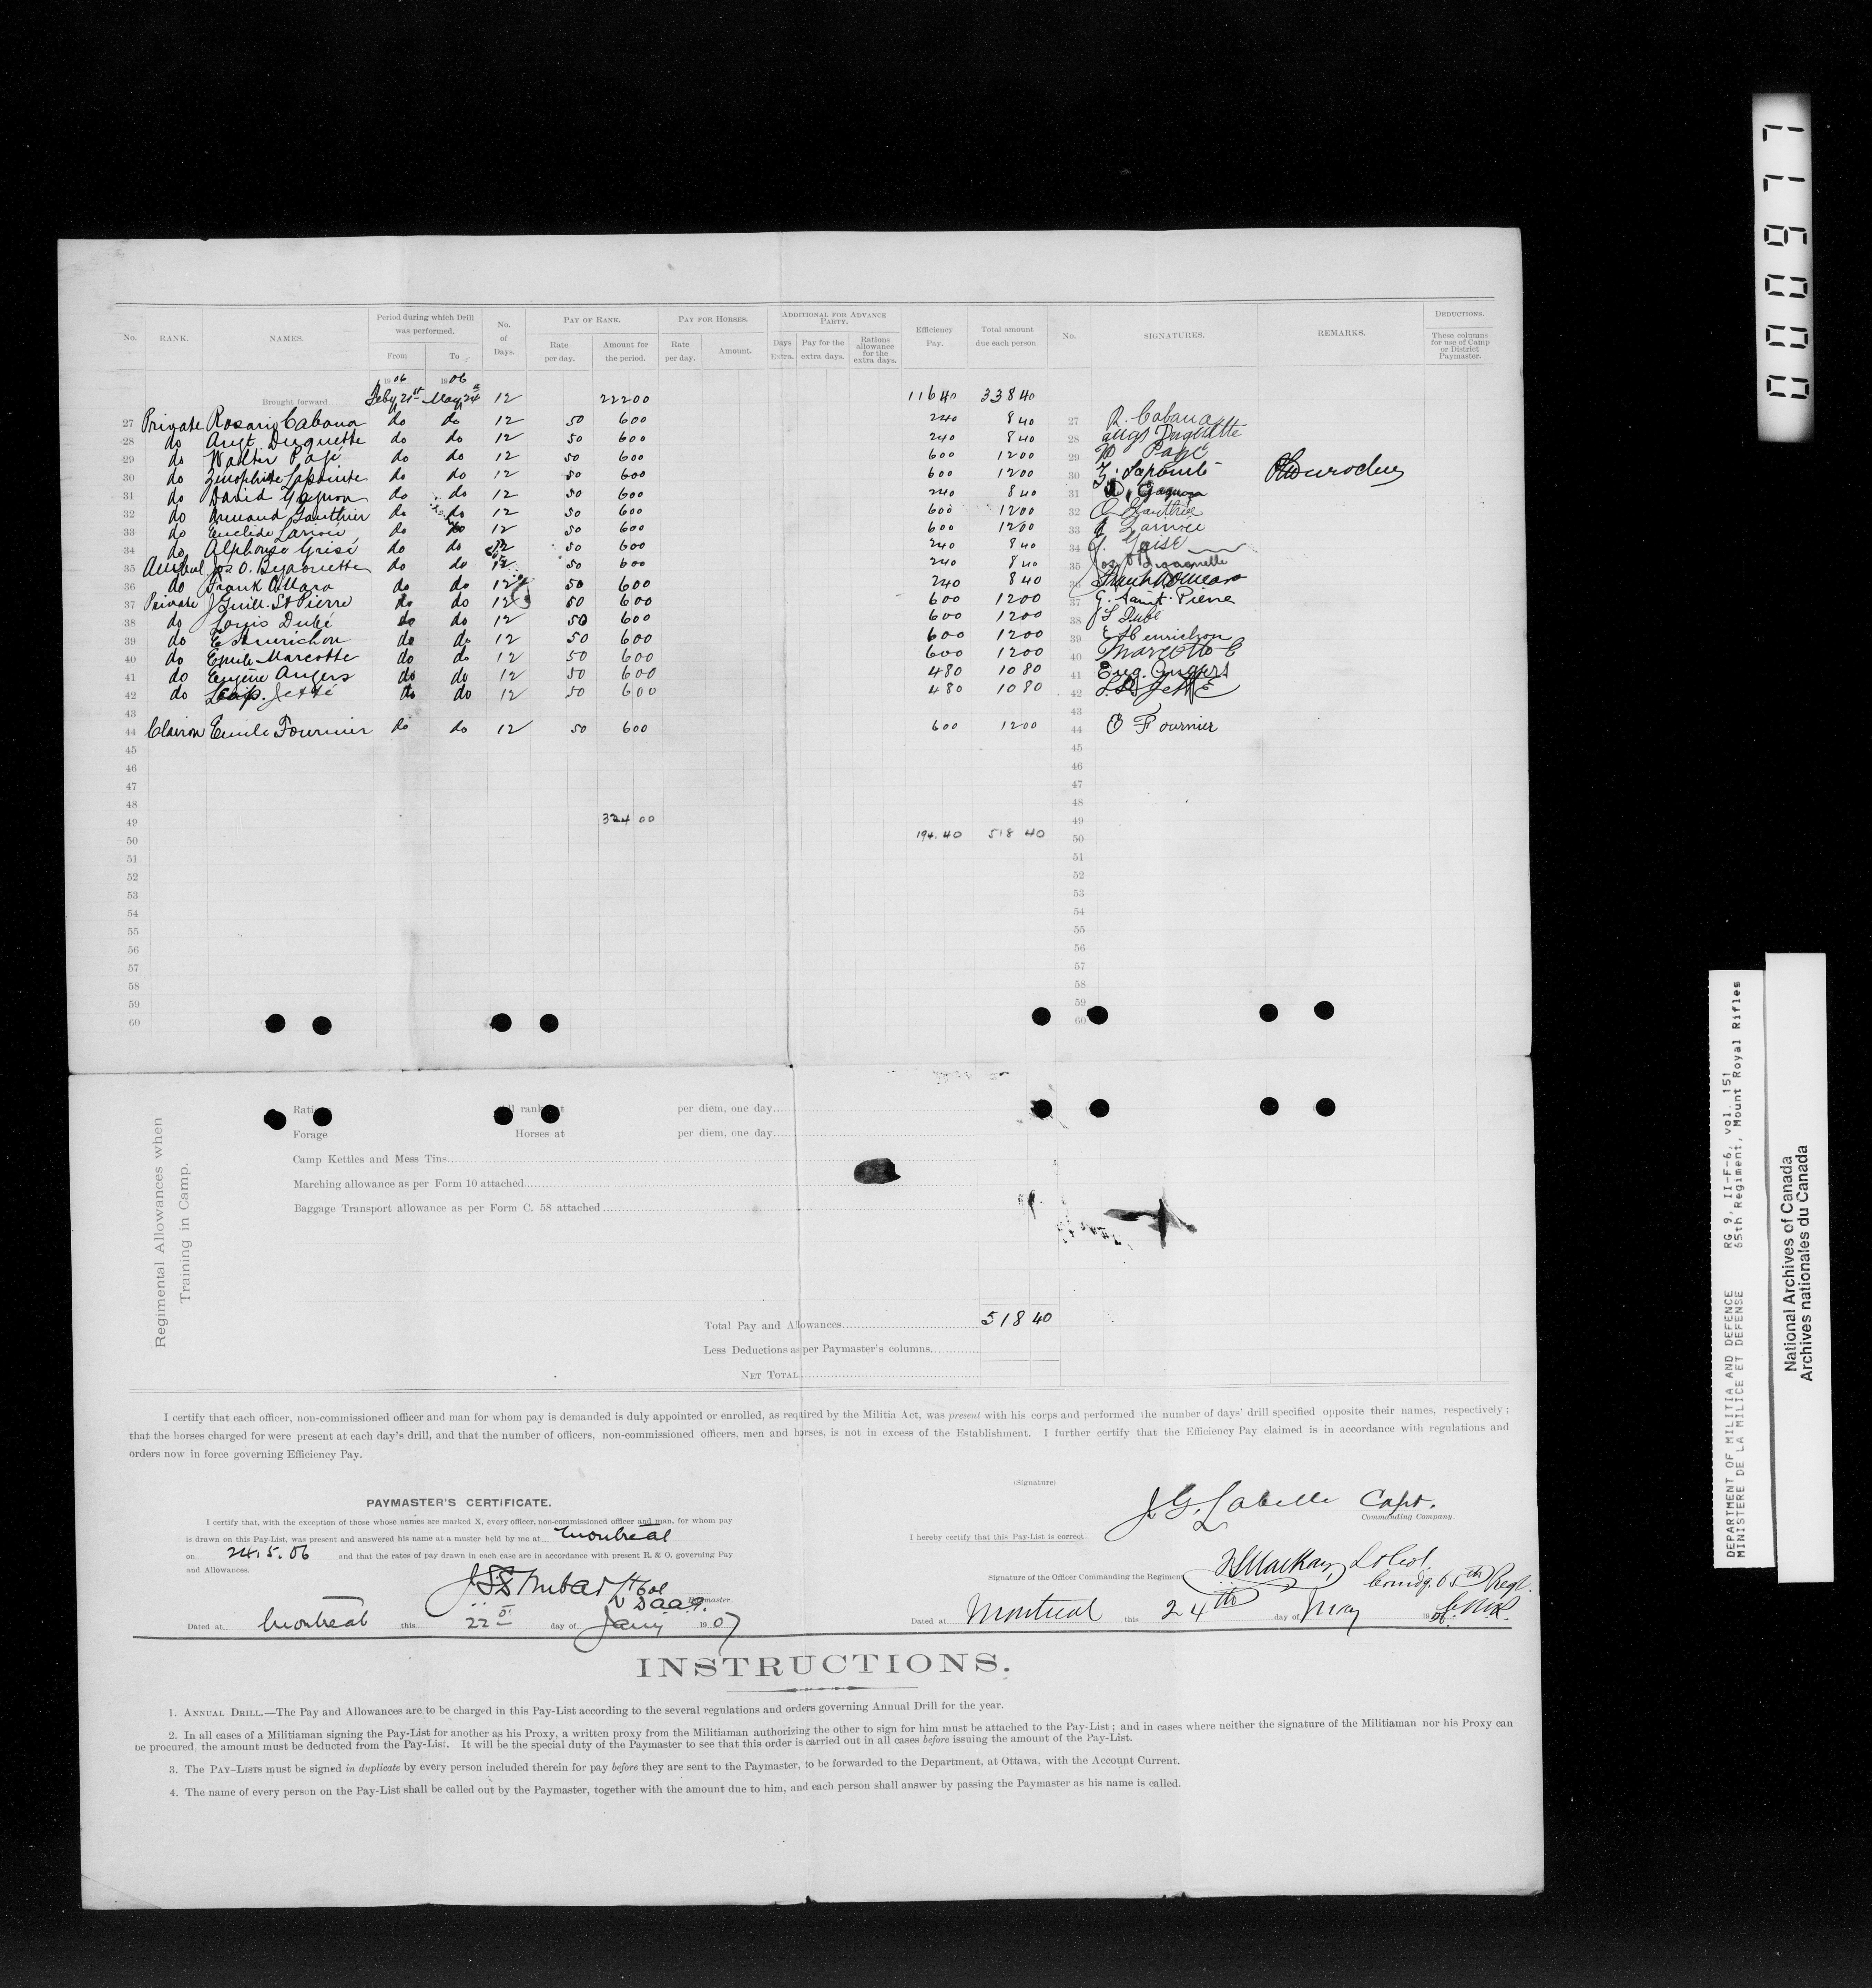 No. RANK. NAMES. Period during which Drill was performed. From To No. of Days. PAY OF RANK. Rate per day. Amount for the period. PAY FOR HORSES. Rate per day. Amount. ADDITIONAL FOR ADVANCE PARTY. Days Extra. Pay for the extra days. Rations allowance for the extra days. Efficiency Pay. Total amount due each person. No. SIGNATURES. REMARKS. DEDUCTIONS. These columns for use of Camp or District Paymaster.
1906 1906
Brought forward Feby 21st May 24th 12 222 00 116 40 338 40
27 Private Rosario Cabana do do 12 50 6 00 2 40 8 40 27 R. Cabana
28 do Augt. Duquette do do 12 50 6 00 2 40 8 40 28 Augt Duquette
29 do Walter Pagé do do 12 50 6 00 6 00 12 00 29 W Pagé
30 do Zenophile Lapointe do do 12 50 6 00 6 00 12 00 30 Z. Lapointe
31 do David Gagnon do do 12 50 6 00 2 40 8 40 31 D. Gagnon
32 do Armand Gauthier do do 12 50 6 00 6 00 12 00 32 Gauthier
33 do Euclide do do 12 50 6 00 6 00 12 00 33
34 do Alphonse Grisé do do 12 50 6 00 2 40 8 40 34
35 Jos O. do do 12 50 6 00 2 40 8 40 35 Jos O
36 do Frank O'Mara do do 12 50 6 00 2 40 8 40 36 Frank
37 Private J Guill. St Pierre do do 12 50 6 00 6 00 12 00 37 G. Saint-Pierre
38 do Louis Dubé do do 12 50 6 00 6 00 12 00 38 L Dubé
39 do E. do do 12 50 6 00 6 00 12 00 39
40 do Emile Marcotte do do 12 50 6 00 6 00 12 00 40 Marcotte E
41 do Eugène Angers do do 12 50 6 00 4 80 10 80 41 Eug. Angers
42 do Jetté do do 12 50 6 00 4 80 10 80 42 Jetté
43 43
44 Clairon Emile Fournier do do 12 50 6 00 6 00 12 00 44 E Fournier
45 45
46 46
47 47
48 48
49 324 00 49
50 194.40 518 40 50
51 51
52 52
53 53
54 54
55 55
56 56
57 57
58 58
59 59
60 60
Regimental Allowances when
Training in Camp.
per diem, one day
Forage Horses at per diem, one day
Camp Kettles and Mess Tins
Marching allowance as per Form 10 attached
Baggage Transport allowance as per Form C. 58 attached
Total Pay and Allowances 518 40
Less Deductions as per Paymaster's columns
NET TOTAL
I certify that each officer, non-commissioned officer and man for whom pay is demanded is duly appointed or enrolled, as required by the Militia Act, was present with his corps and performed the number of days' drill specified opposite their names, respectively;
that the horses charged for were present at each day's drill, and that the number of officers, non-commissioned officers, men and horses, is not in excess of the Establishment. I further certify that the Efficiency Pay claimed is in accordance with regulations and
orders now in force governing Efficiency Pay.
PAYMASTER'S CERTIFICATE.
I certify that, with the exception of those whose names are marked X, every officer, non-commissioned officer and man, for whom pay
is drawn on this Pay-List, was present and answered his name at a muster held by me at Montreal
on 24.5.06 and that the rates of pay drawn in each case are in accordance with present R. & O. governing Pay
and Allowances.
Lt Col
Paymaster
Dated at Montreal this 22 day of Jany 1907
(Signature) J. G. Labelle Capt.
Commanding Company.
I hereby certify that this Pay-List is correct.
Signature of the Officer Commanding the Regiment Mackay, Lt Col.
Comdg. 65th Regt.
Dated at Montreal this 24th day of May 1906
INSTRUCTIONS.
1. ANNUAL DRILL.—The Pay and Allowances are to be charged in this Pay-List according to the several regulations and orders governing Annual Drill for the year.
2. In all cases of a Militiaman signing the Pay-List for another as his Proxy, a written proxy from the Militiaman authorizing the other to sign for him must be attached to the Pay-List; and in cases where neither the signature of the Militiaman nor his Proxy can
be procured, the amount must be deducted from the Pay-List. It will be the special duty of the Paymaster to see that this order is carried out in all cases before issuing the amount of the Pay-List.
3. The PAY-LISTS must be signed in duplicate by every person included therein for pay before they are sent to the Paymaster, to be forwarded to the Department, at Ottawa, with the Account Current.
4. The name of every person on the Pay-List shall be called out by the Paymaster, together with the amount due to him, and each person shall answer by passing the Paymaster as his name is called.
000977
DEPARTMENT OF MILITIA AND DEFENCE RG 9, II-F-6, vol. 151
MINISTERE DE LA MILICE ET DEFENSE 65th Regiment, Mount Royal Rifles
National Archives of Canada
Archives nationales du Canada